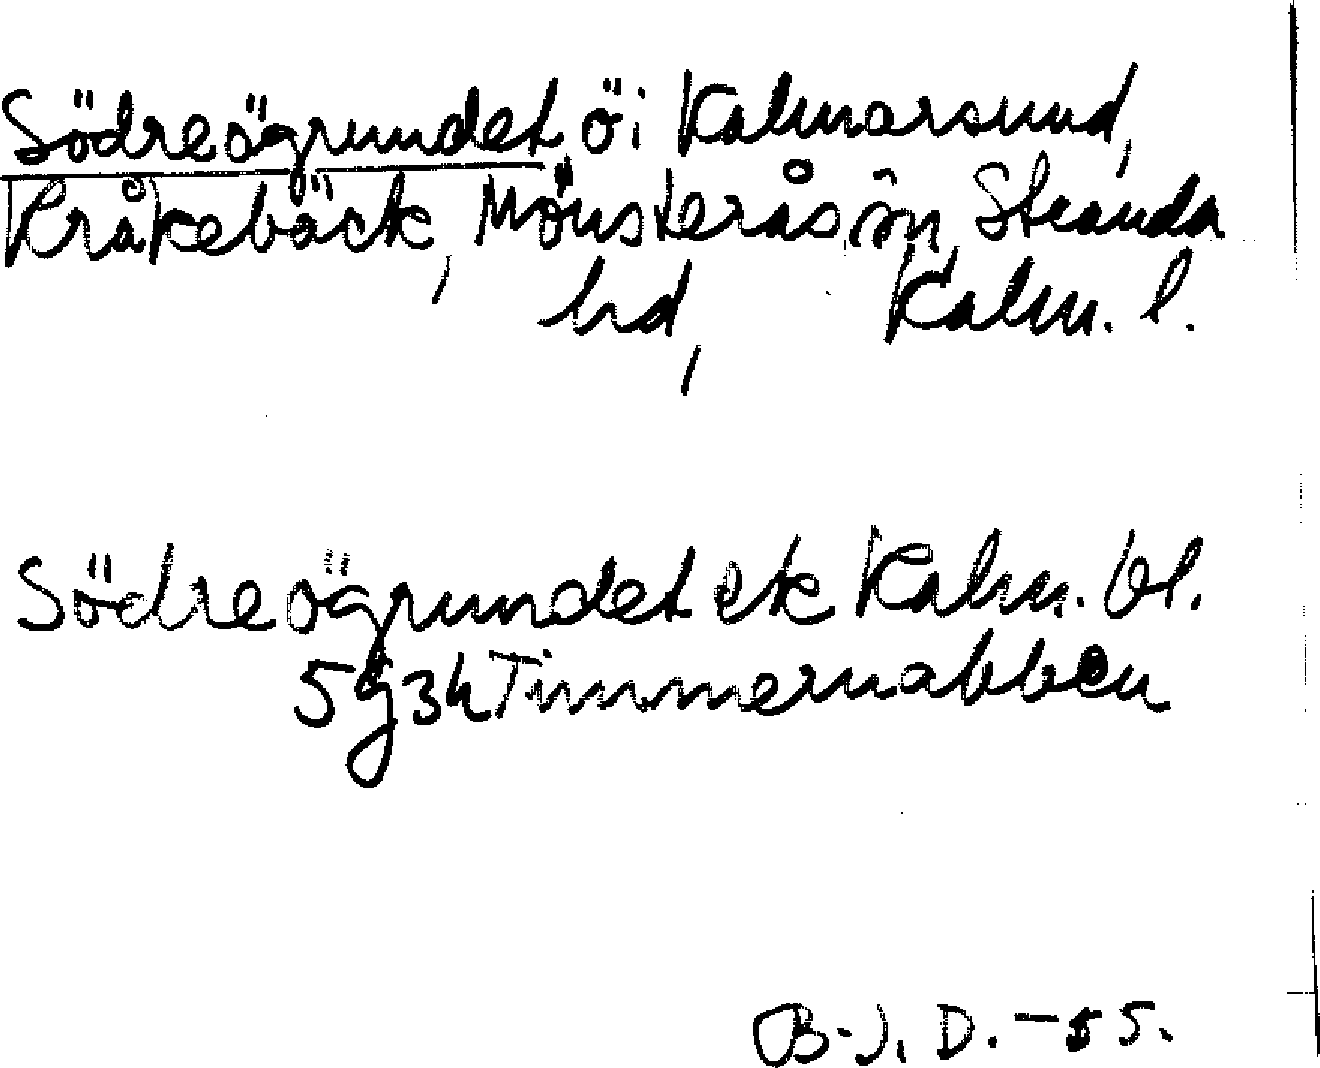 Södreögrundet ö i Kalmarsund,
Kråkebäck, Mönsterås sn, Stranda
hd, Kalm. l.
Södreögrundet ek Kalm. bl.
5g34 Timmernabben
B-J. D. -55.